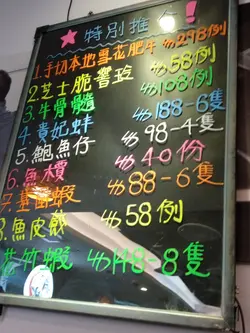 特別推介!
1.手切本地雪花肥牛 $298例
2.芝士脆響玲 $58例
3.牛骨髓 $108例
4.貴妃蚌 $188-6隻
5.鮑魚仔 $98-4隻
6.魚札 $40份
7.基圍蝦 $88-6隻
8.魚皮餃 $58例
竹蝦 $148-8隻